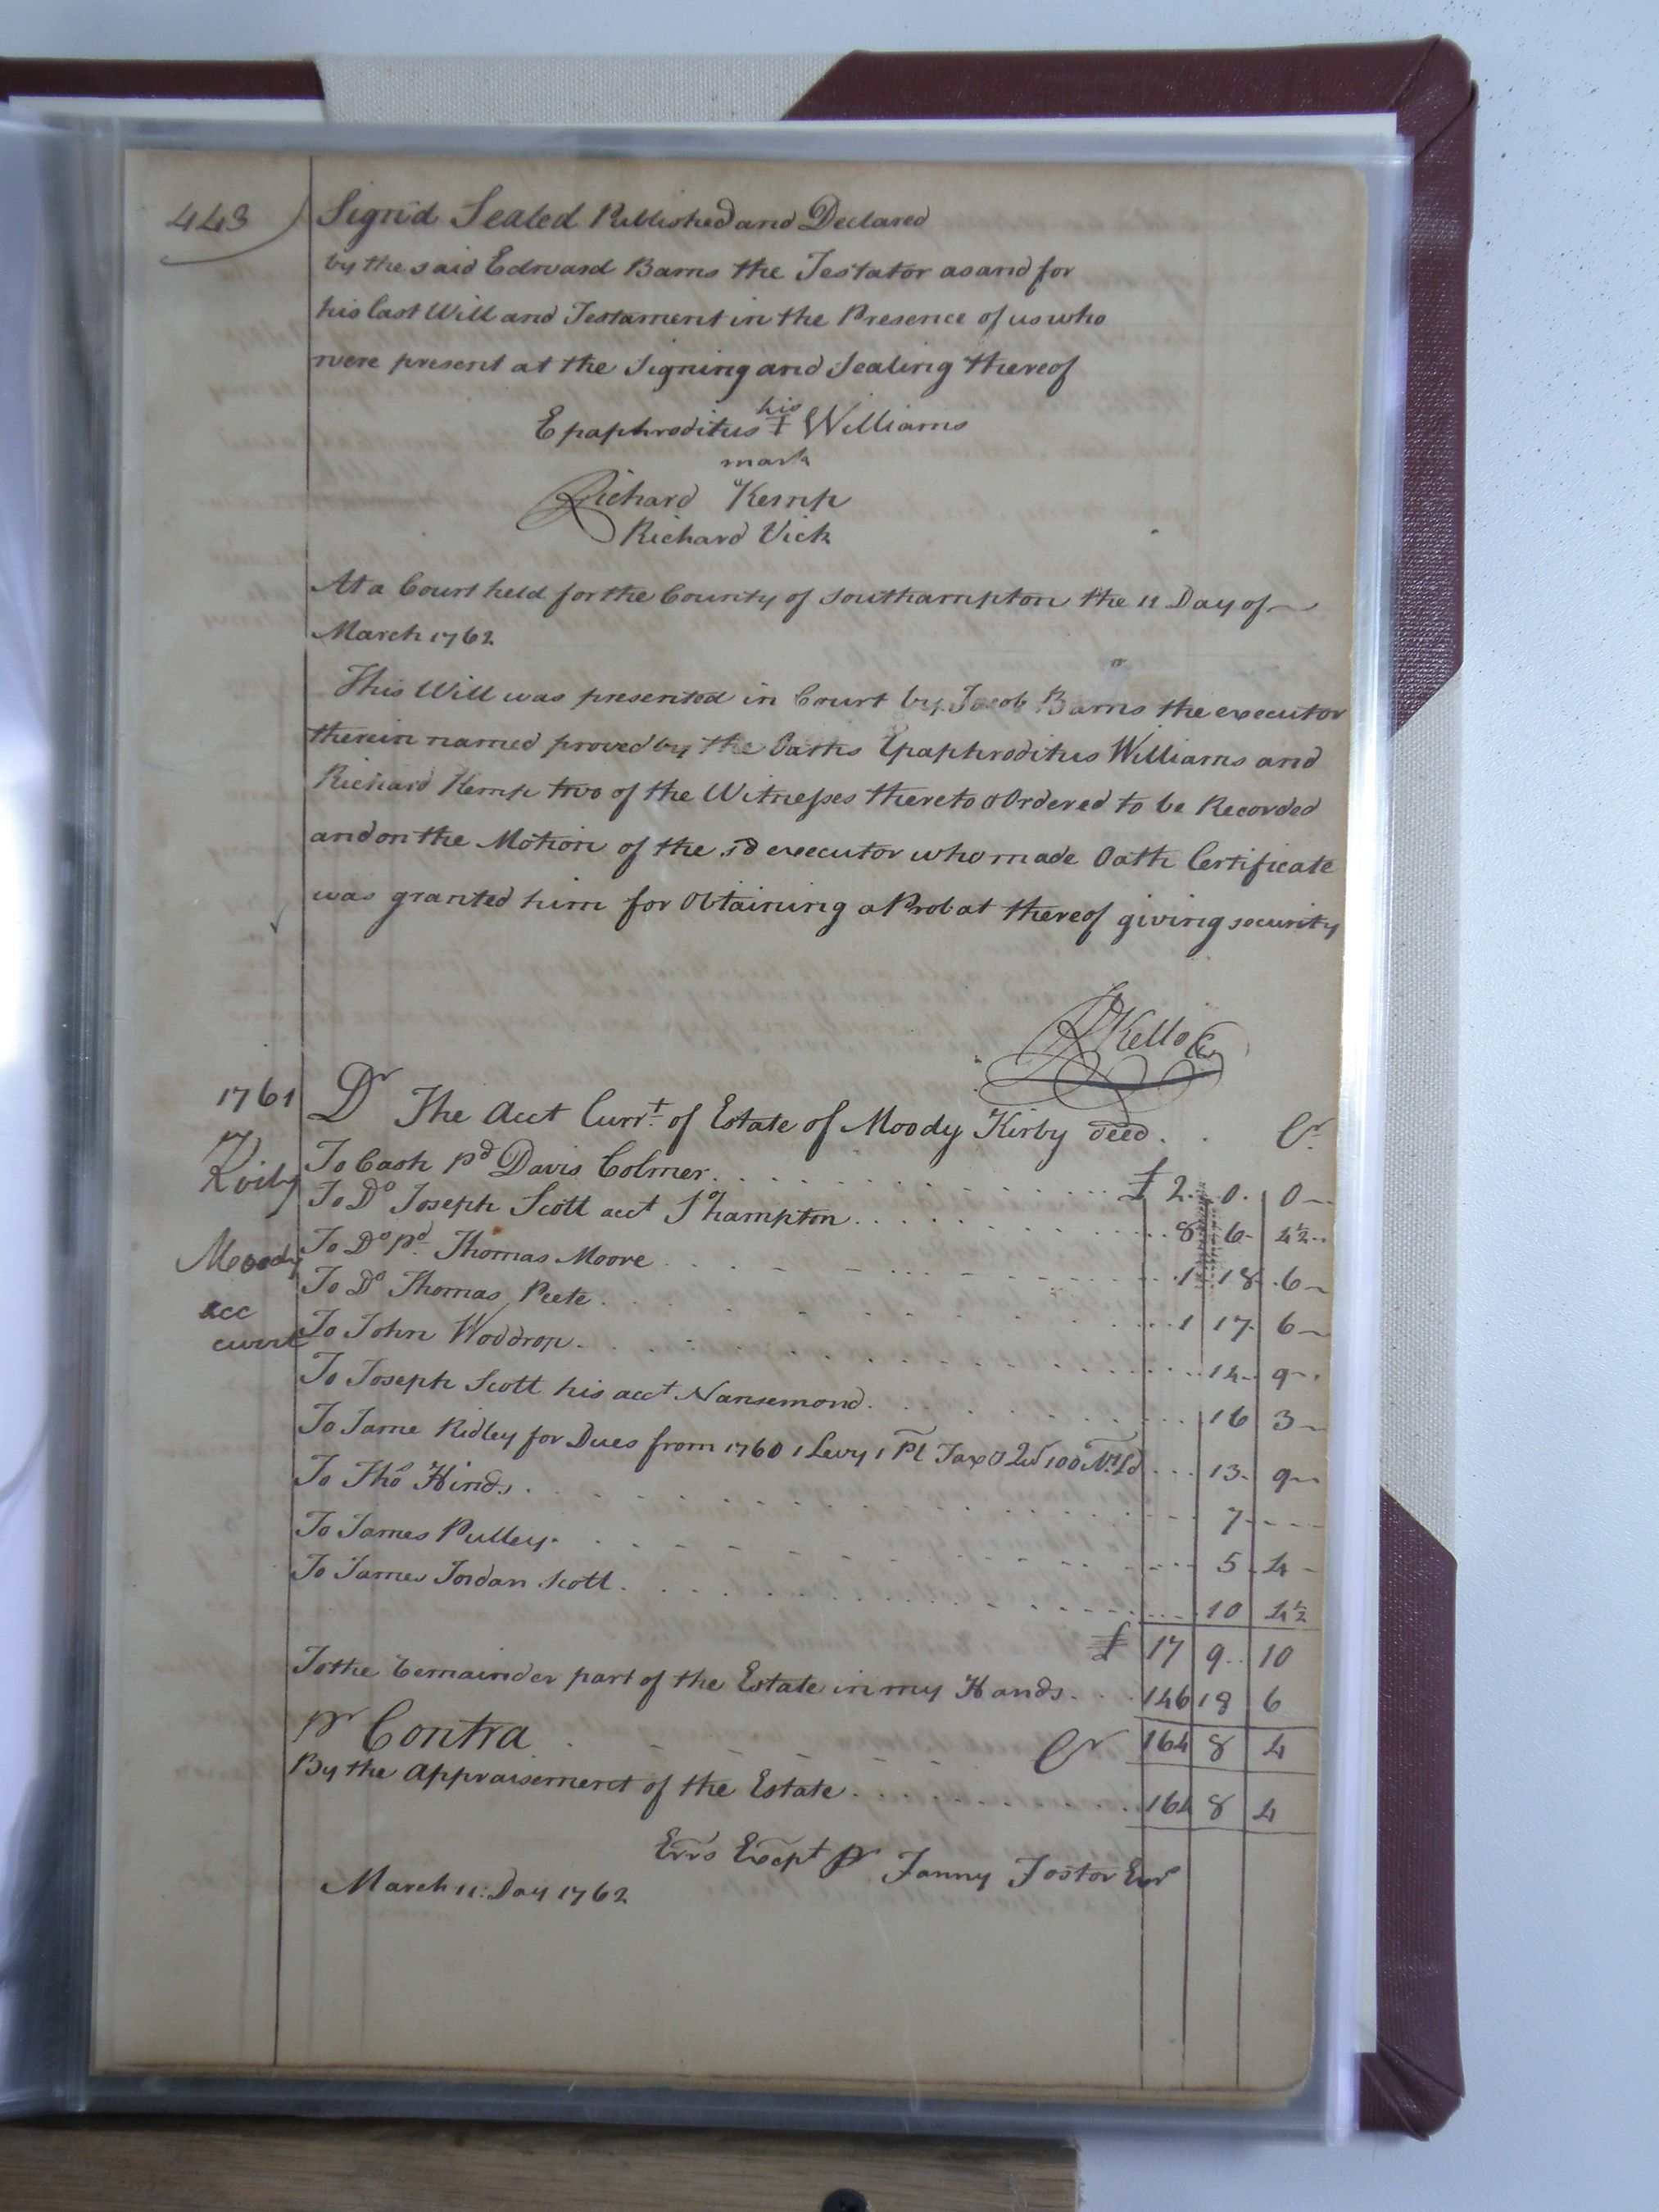 443
Sign'd Sealed Published and Declared
by the said Edward Barns the Testator as and for
his last Will and Testament in the Presence of us who
were present at the Signing and Sealing thereof
his
Epaphroditus ‡ Williams
mark
Richard Kemp
Richard Vick
At a Court held for the County of Southampton the 11 Day of
March 1762
This Will was presented in Court by Jacob Barns the executor
therein named proved by the Oaths Epaphroditus Williams and
Richard Kemp two of the Witnesses thereto & Ordered to be Recorded
and on the Motion of the sd executor who made Oath Certificate
was granted him for Obtaining a Probat thereof giving security
Kello
1761 Dr The Acct Currt. of Estate of Moody Kirby decd . . Cr
Kirby
Moody
acc
curre
To Cash pd Davis Colmer £ 2. 0. 0
To Do Joseph Scott acct So hampton 8 6 4½
To Do pd Thomas Moore 1 18 6
To Do Thomas Peete 1 17 6
To John Woddrop 14 9
To Joseph Scott his acct Nansemond 16 3
To Jame Ridley for Dues from 1760 1 Levy 1 Pl Tax & 100 13 9
To Tho Hinds 7
To James Pulley 5 4
To James Jordan Scott 10 4½
£ 17 9 10
To the Remainder part of the Estate in my Hands 146 18 6
pr Contra Cr 164 8 4
By the Appraisement of the Estate 164 8 4
Errs Except pr Fanny Foster Exr
March 11: Day 1762